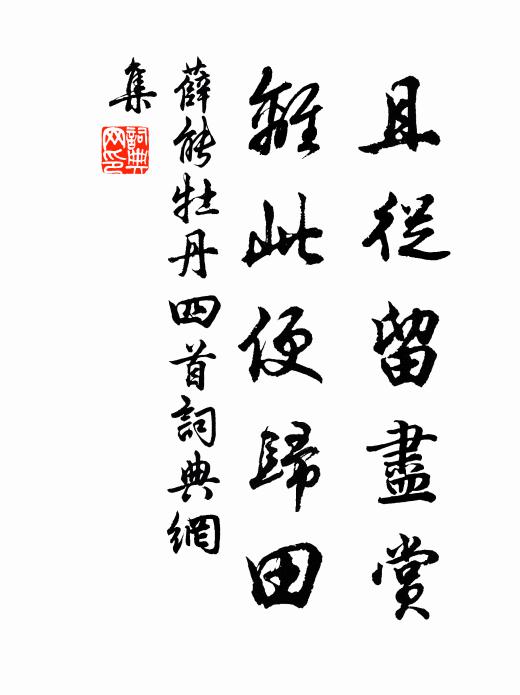 且從留盡賞
離此便歸田
薛能牡丹四首詞典網
集
詞典
网印